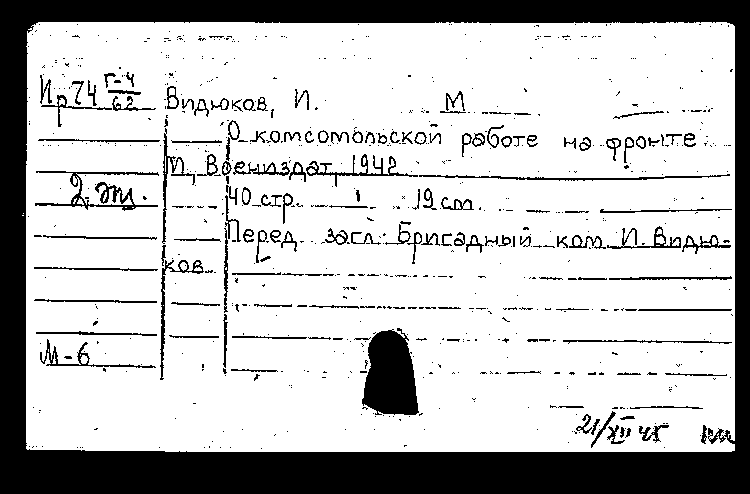 Ир74 Г-4/62 Видюков, И. М
О комсомольской работе на фронте.
М., Воениздат, 1942
2 эк.
40 стр. 19 cm.
Перед загл: Бригадный ком И. Видю-
ков
М-6
21/XII 45